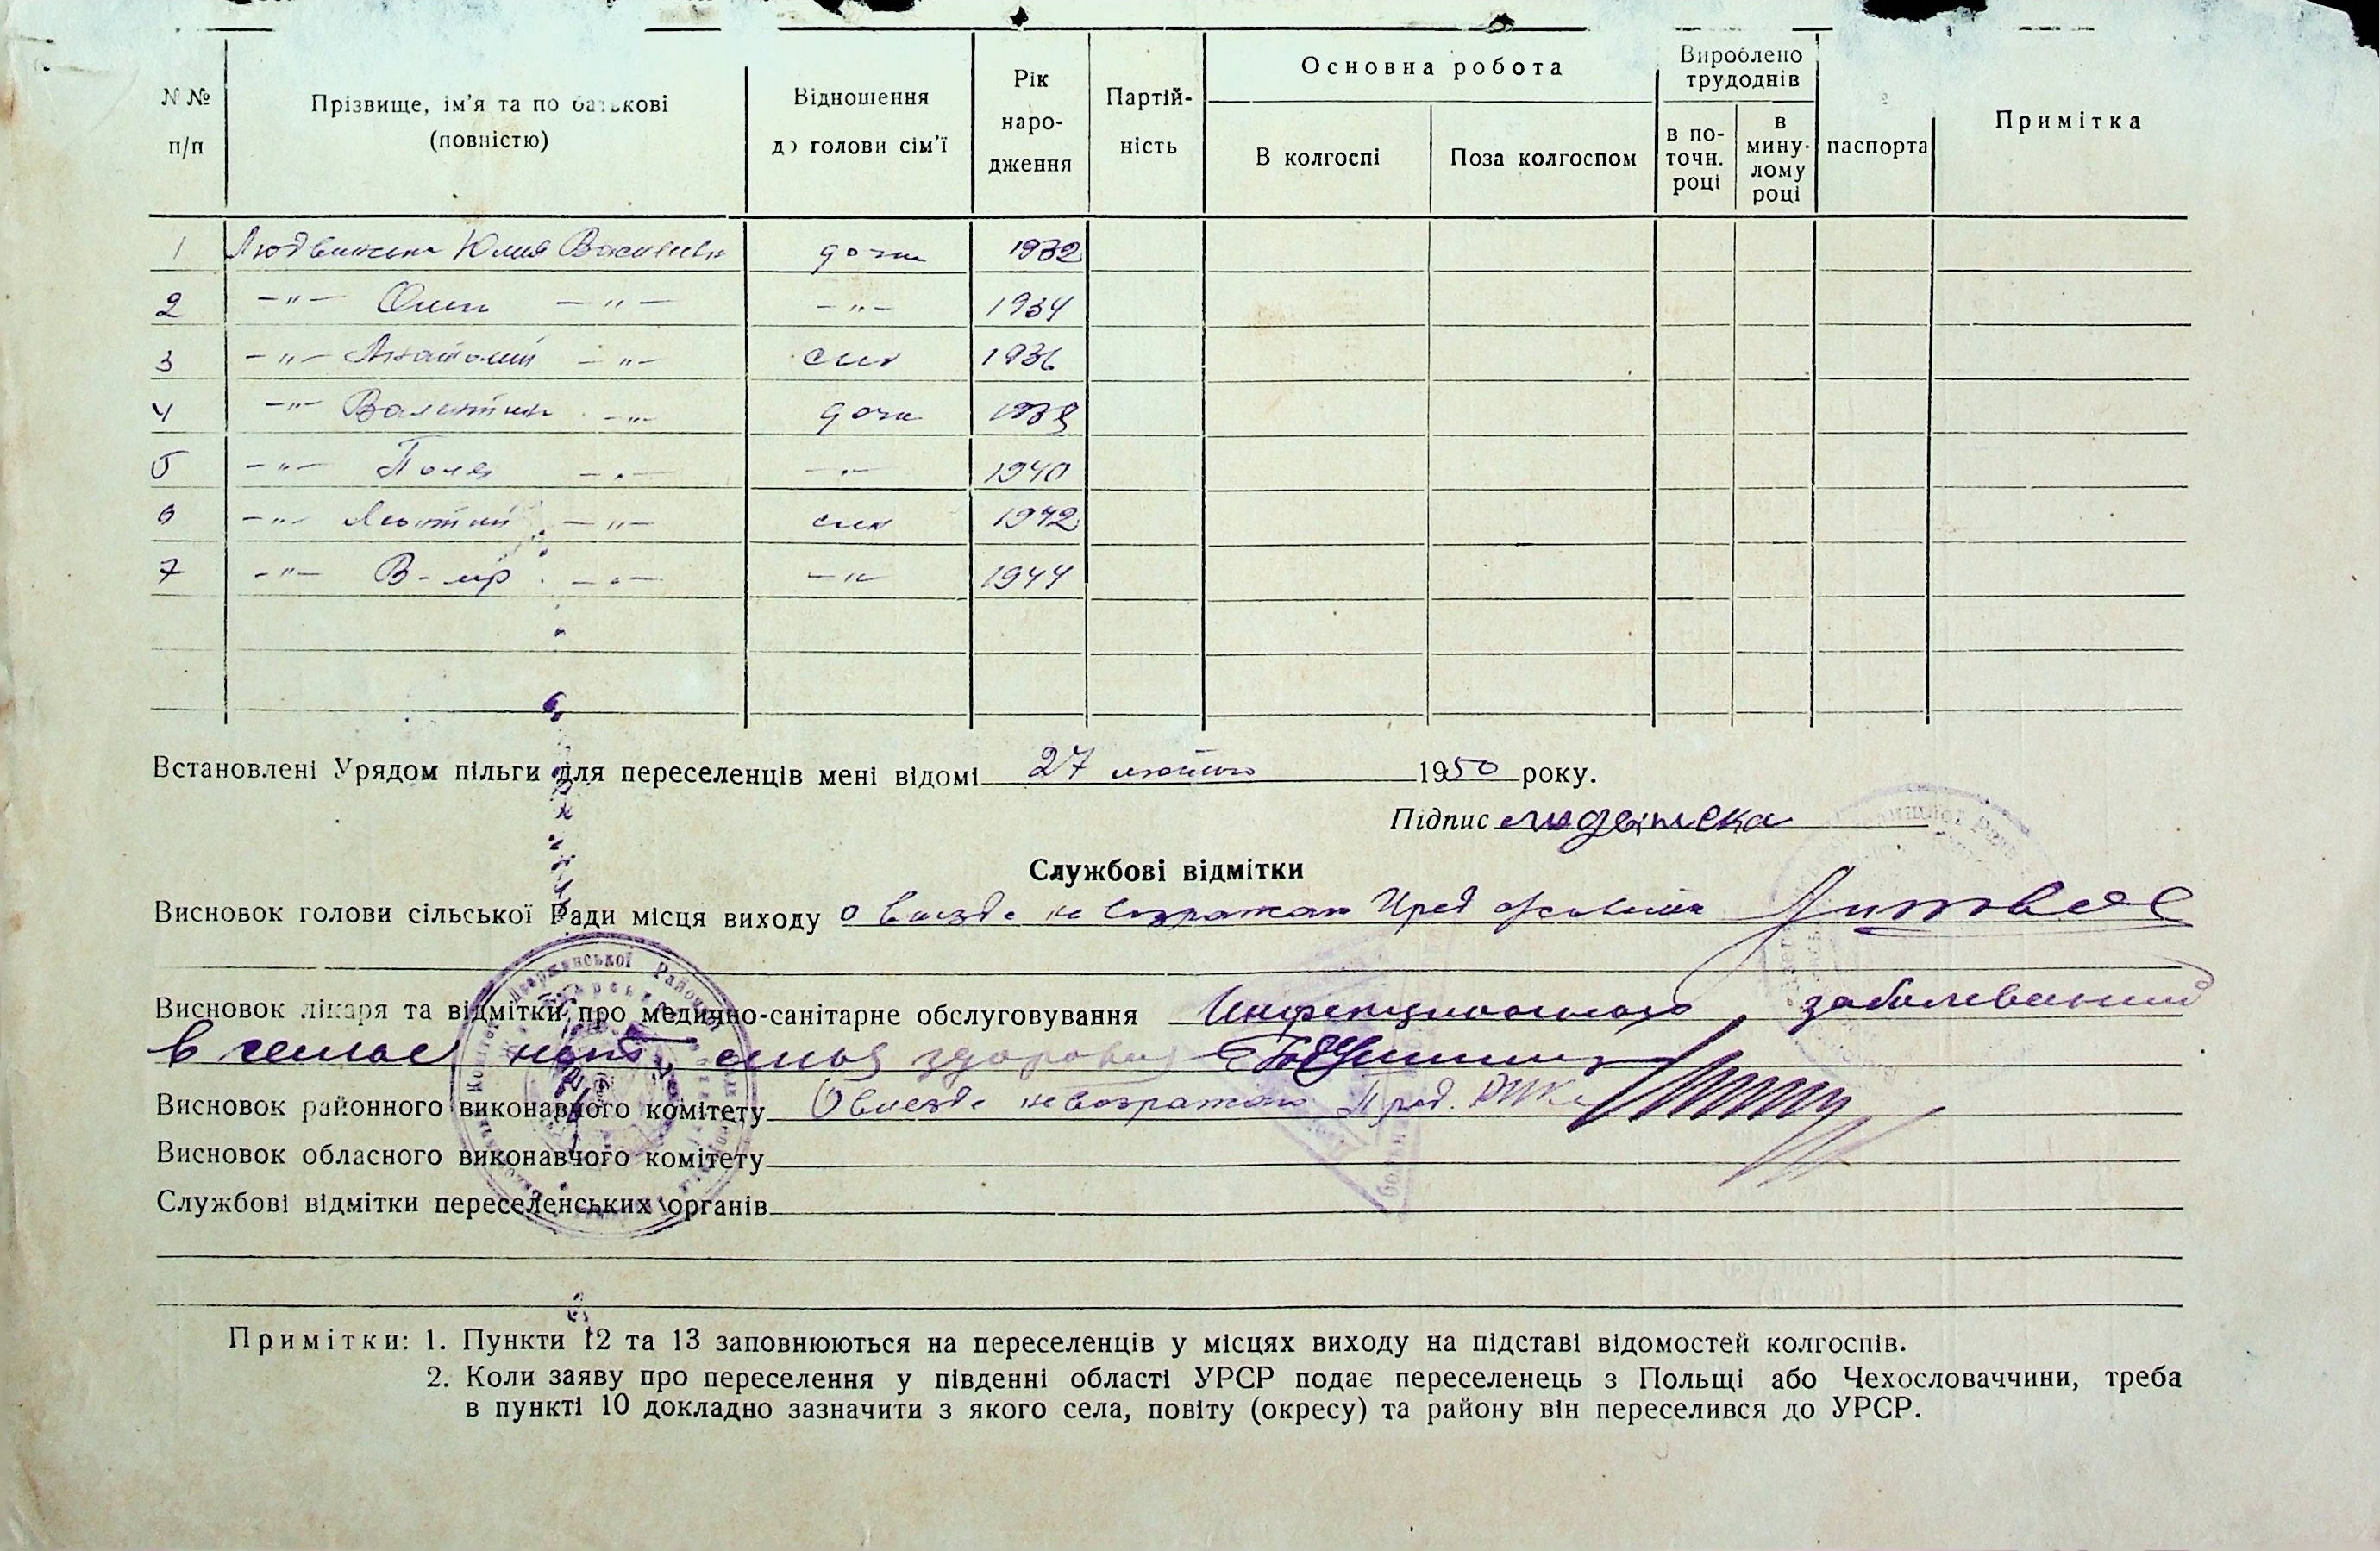 N №
п/п
Прізвище, ім'я та по батькові
(повністю)
Відношення
до голови сім'ї
Рік
наро-
дження
Партій-
ність
Основна робота
В колгоспі
Поза колгоспом
Вироблено
трудоднів
в по-
точн.
році
в
мину-
лому
році
№
паспорта
Примітка
1 Юлия дочь 1932
2 -"- -"- -"- 1934
3 -"- Анатолий -"- сын 1936
4 -"- Валентина -"- дочь 1938
5 -"- Поля -"- -"- 1940
6 -"- -"- сын 1942
7 -"- В-мир -"- -"- 1944
Встановлені Урядом пільги для переселенців мені відомі 27 лютого 1950 року.
Підпис
Службові відмітки
Висновок голови сільської Ради місця виходу о выезде не возражаю Пред
Висновок лікаря та відмітки про медично-санітарне обслуговування Инфекционного заболеваний
в семье нет семья здорова
Висновок районного виконавчого комітету О выезде не возражаю Пред. РИК
Висновок обласного виконавчого комітету
Службові відмітки переселенських органів
Примітки: 1. Пункти 12 та 13 заповнюються на переселенців у місцях виходу на підставі відомостей колгоспів.
2. Коли заяву про переселення у південні області УРСР подає переселенець з Польщі або Чехословаччини, треба
в пункті 10 докладно зазначити з якого села, повіту (окресу) та району він переселився до УРСР.